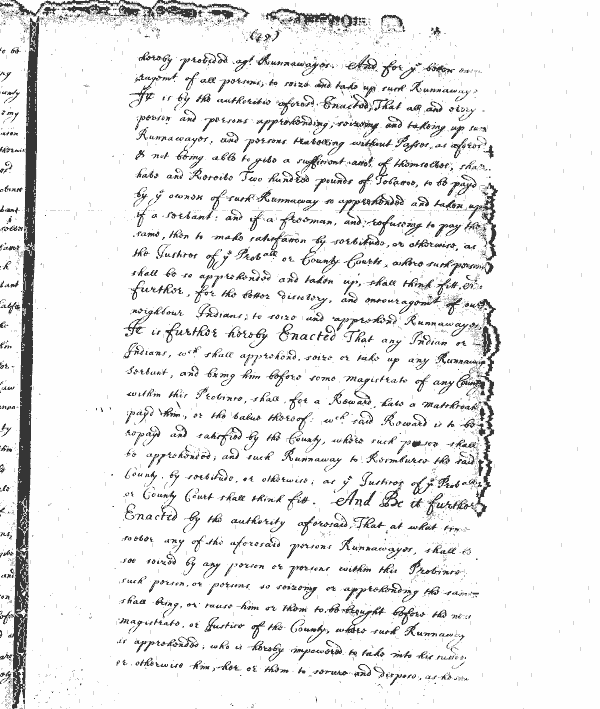 (12)
hereby provided agt Runnawayes. And for ye better
ragemt of all persons, to seize and take up such Runnawayes
It is by the authoritie aforesd Enacted, That all and every
person and persons apprehending, seizeing and takeing up such
Runnawayes, and persons travelling without Passes, as aforesd
& not being able to give a sufficient acct. of themselves, shall
have and Receive Two hundred pounds of Tobacco, to be payd
by ye owner of such Runnaway so apprehended and taken up
if a servant; and if a freeman, and refuseing to pay the
same, then to make satisfaction by servitude, or otherwise, as
the Justices of ye Provall or County Courts, where such person
shall be so apprehended and taken up, shall think fitt, And
further, for the better discovery, and encouragemt of our
neighbour Indians; to seize and apprehend Runnawayes,
It is further hereby Enacted That any Indian or
Indians, wch shall apprehend, seize or take up any Runnaway
Servant, and bring him before some magistrate of any County
within this Province, shall, for a Reward, have a matchcoat
payd him, or the value thereof: wch said Reward is to be
repayd and satisfied by the County, where such person shall
be apprehended; and such Runnaway to Reimburse the said
County by servitude, or otherwise, as ye Justices of ye Provall
or County Court shall think fitt. And Be it further
Enacted by the authority aforesaid, That at what time
soever any of the aforesaid persons Runnawayes, shall be
soe seized by any person or persons within this Province
such person, or persons, so seizeing or apprehending the same
shall bring, or cause him or them to be brought before the next
magistrate, or Justice of the County, where such Runnaway
is apprehended, who is hereby impowered to take into his custody
or otherwise him, her or them to secure and dispose, as he